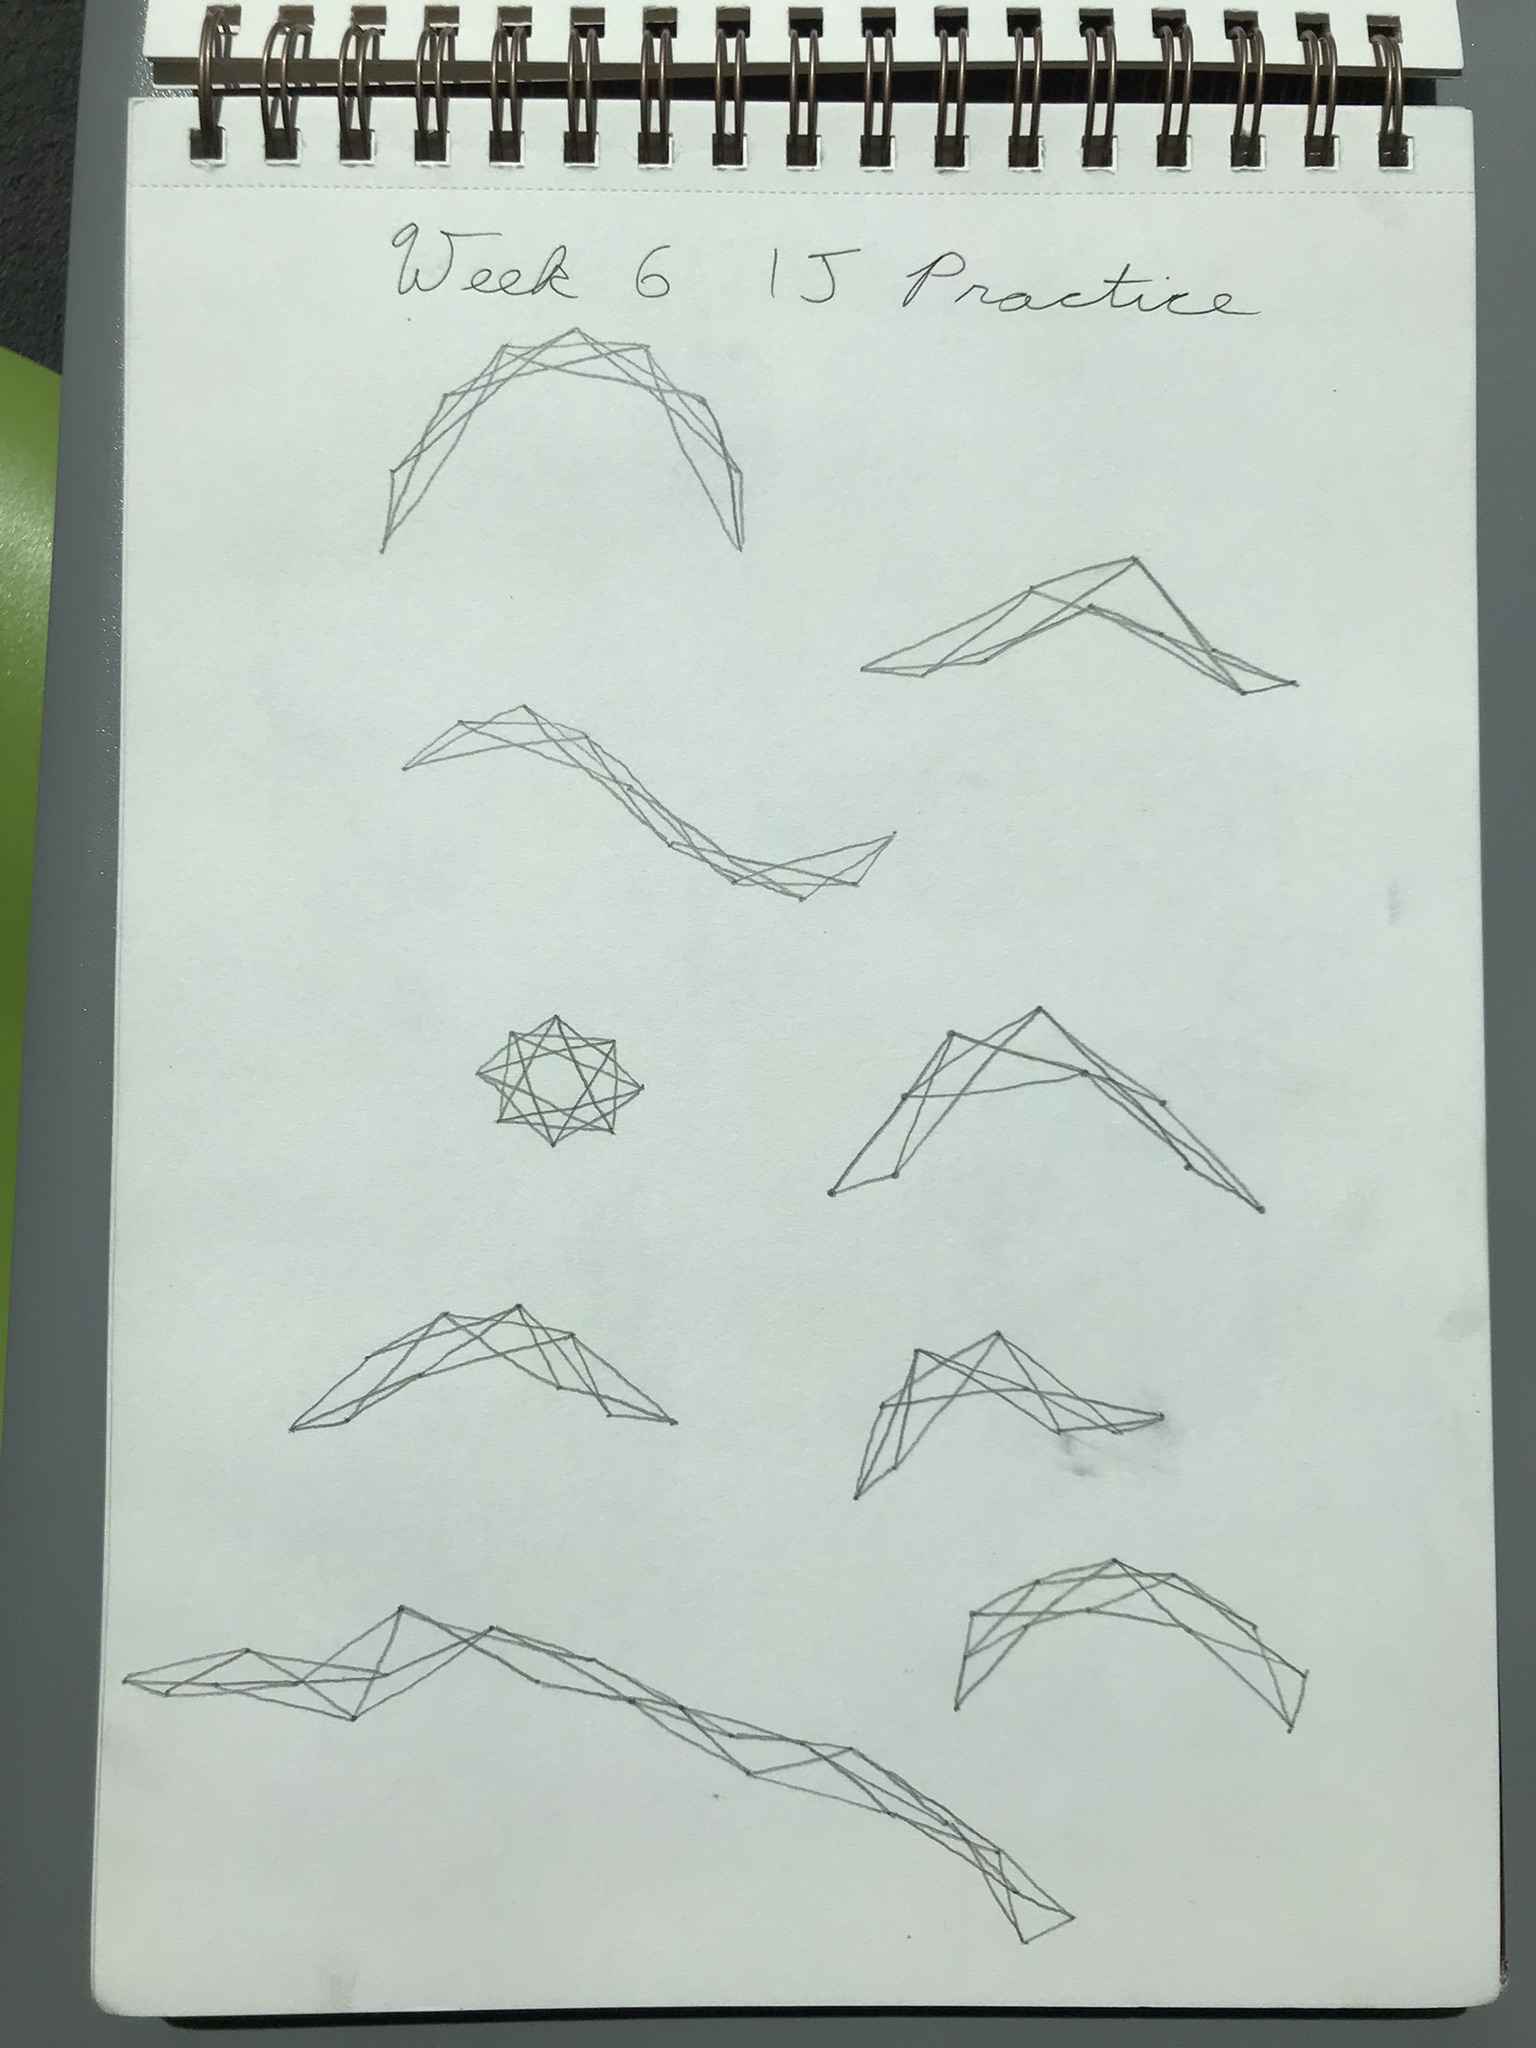 Week 6 IJ Practice